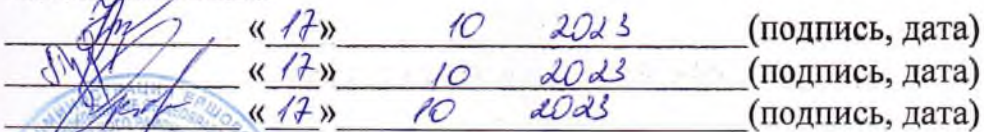 « 17» 10 2023 (подпись, дата)
« 17» 10 2023 (подпись, дата)
« 17» 10 2023 (подпись, дата)